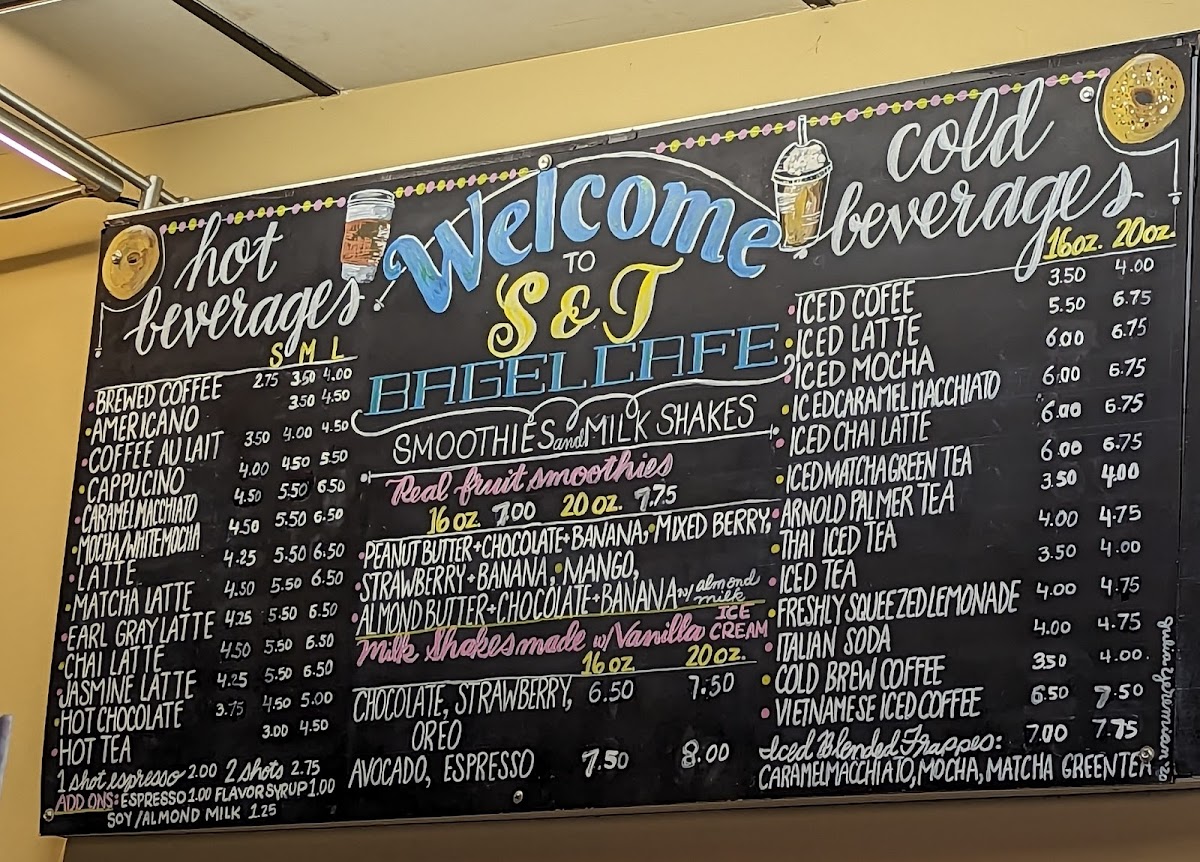 hot
beverages
S M L
BREWED COFFEE 2.75 3.50 4.00
AMERICANO 3.50 4.50
COFFEE AU LAIT 3.50 4.00 4.50
CAPPUCINO 4.00 4.50 5.50
CARAMEL MACCHIATO 4.50 5.50 6.50
MOCHA/WHITE MOCHA 4.50 5.50 6.50
LATTE 4.25 5.50 6.50
MATCHA LATTE 4.50 5.50 6.50
EARL GRAY LATTE 4.25 5.50 6.50
CHAI LATTE 4.50 5.50 6.50
JASMINE LATTE 4.25 5.50 6.50
HOT CHOCOLATE 3.75 4.50 5.00
HOT TEA 3.00 4.50
1 shot espresso 2.00 2 shots 2.75
ADD ONS: ESPRESSO 1.00 FLAVOR SYRUP 1.00
SOY/ALMOND MILK 1.25
Welcome
TO
S & T
BAGEL CAFE
SMOOTHIES and MILK SHAKES
Real fruit smoothies
16 oz 7.00 20 oz. 7.75
PEANUT BUTTER + CHOCOLATE + BANANA, MIXED BERRY,
STRAWBERRY + BANANA, MANGO,
ALMOND BUTTER + CHOCOLATE + BANANA w/ almond milk
Milk Shakes made w/ Vanilla ICE CREAM
16 oz 20 oz.
CHOCOLATE, STRAWBERRY, 6.50 7.50
OREO
AVOCADO, ESPRESSO 7.50 8.00
cold
beverages
16oz. 20oz.
ICED COFEE 3.50 4.00
ICED LATTE 5.50 6.75
ICED MOCHA 6.00 6.75
ICED CARAMEL MACCHIATO 6.00 6.75
ICED CHAI LATTE 6.00 6.75
ICED MATCHA GREEN TEA 6.00 6.75
ARNOLD PALMER TEA 3.50 4.00
THAI ICED TEA 4.00 4.75
ICED TEA 3.50 4.00
FRESHLY SQUEEZED LEMONADE 4.00 4.75
ITALIAN SODA 4.00 4.75
COLD BREW COFFEE 3.50 4.00
VIETNAMESE ICED COFFEE 6.50 7.50
Iced Blended Frappes: 7.00 7.75
CARAMEL MACCHIATO, MOCHA, MATCHA GREEN TEA